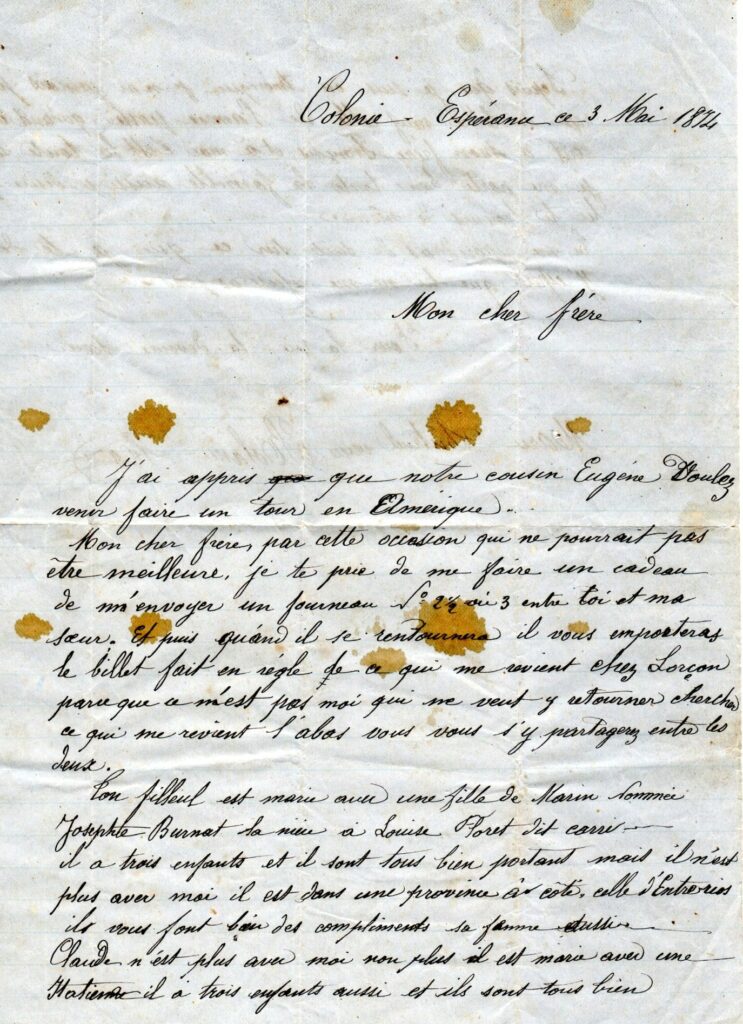 Colonie Espérance ce 3 Mai 1874
Mon cher frère
J'ai appris que que notre cousin Eugéne Voulez
venir faire un tour en Amérique..
Mon cher frére, par cette occasion qui ne pourrait pas
être meilleure, je te prie de me faire un cadeau
de m'envoyer un fourneau No 2½ où 3 entre toi et ma
sœur. Et puis quánd il se rentournera il vous emporteras
le billet fait en régle de ce qui me revient chez Lorçon
parceque ce n'est pas moi qui ne veut y retourner chercher
ce qui me revient l'abas vous vous s'y partagerez entre les
deux.
Ton filleul est marie avec une fille de Marin Nommée
Josephte Burnat la niéce à Louise Floret dit carri
il a trois enfants et il sont tous bien portant mais il n'est
plus avec moi il est dans une province à côte, celle d'Entrerios
ils vous font bien des compliments sa femme aussi.
Claude n'est plus avec moi non plus il est marie avec une
Italienne il à trois enfants aussi et ils sont tous bien